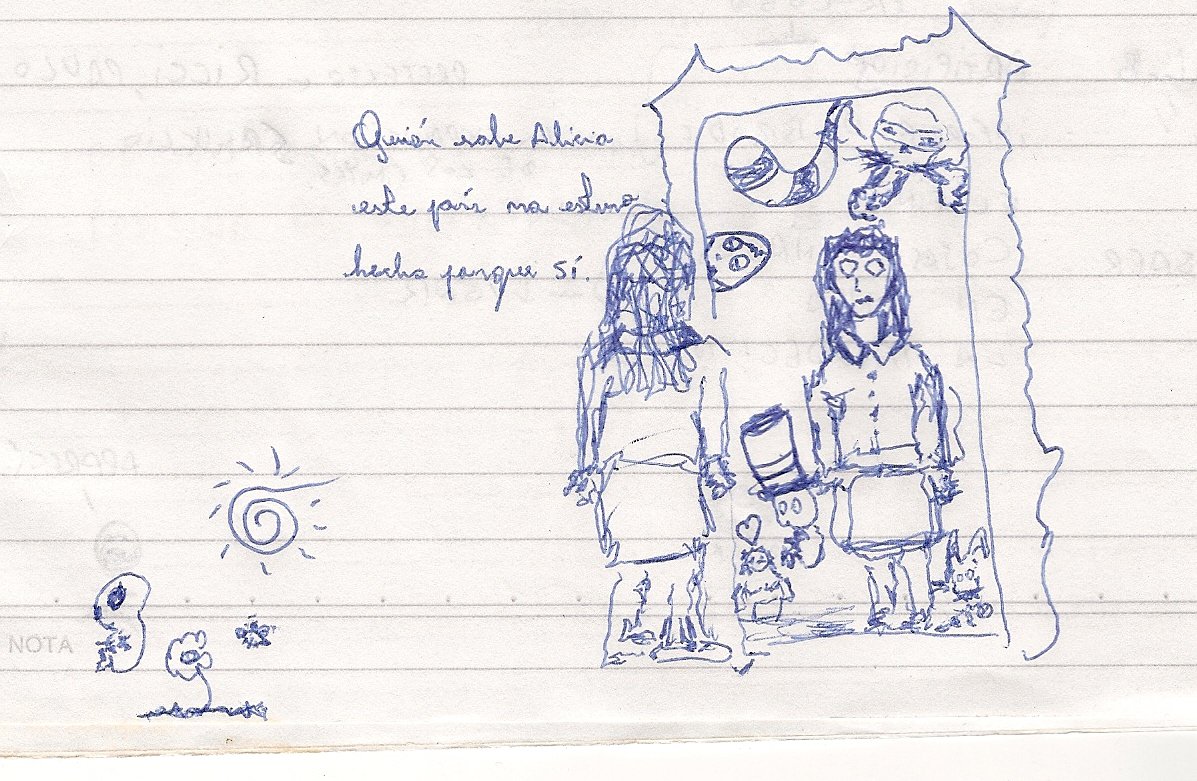 Quién sabe Alicia
este país no estuvo
hecho porque sí.
NOTA